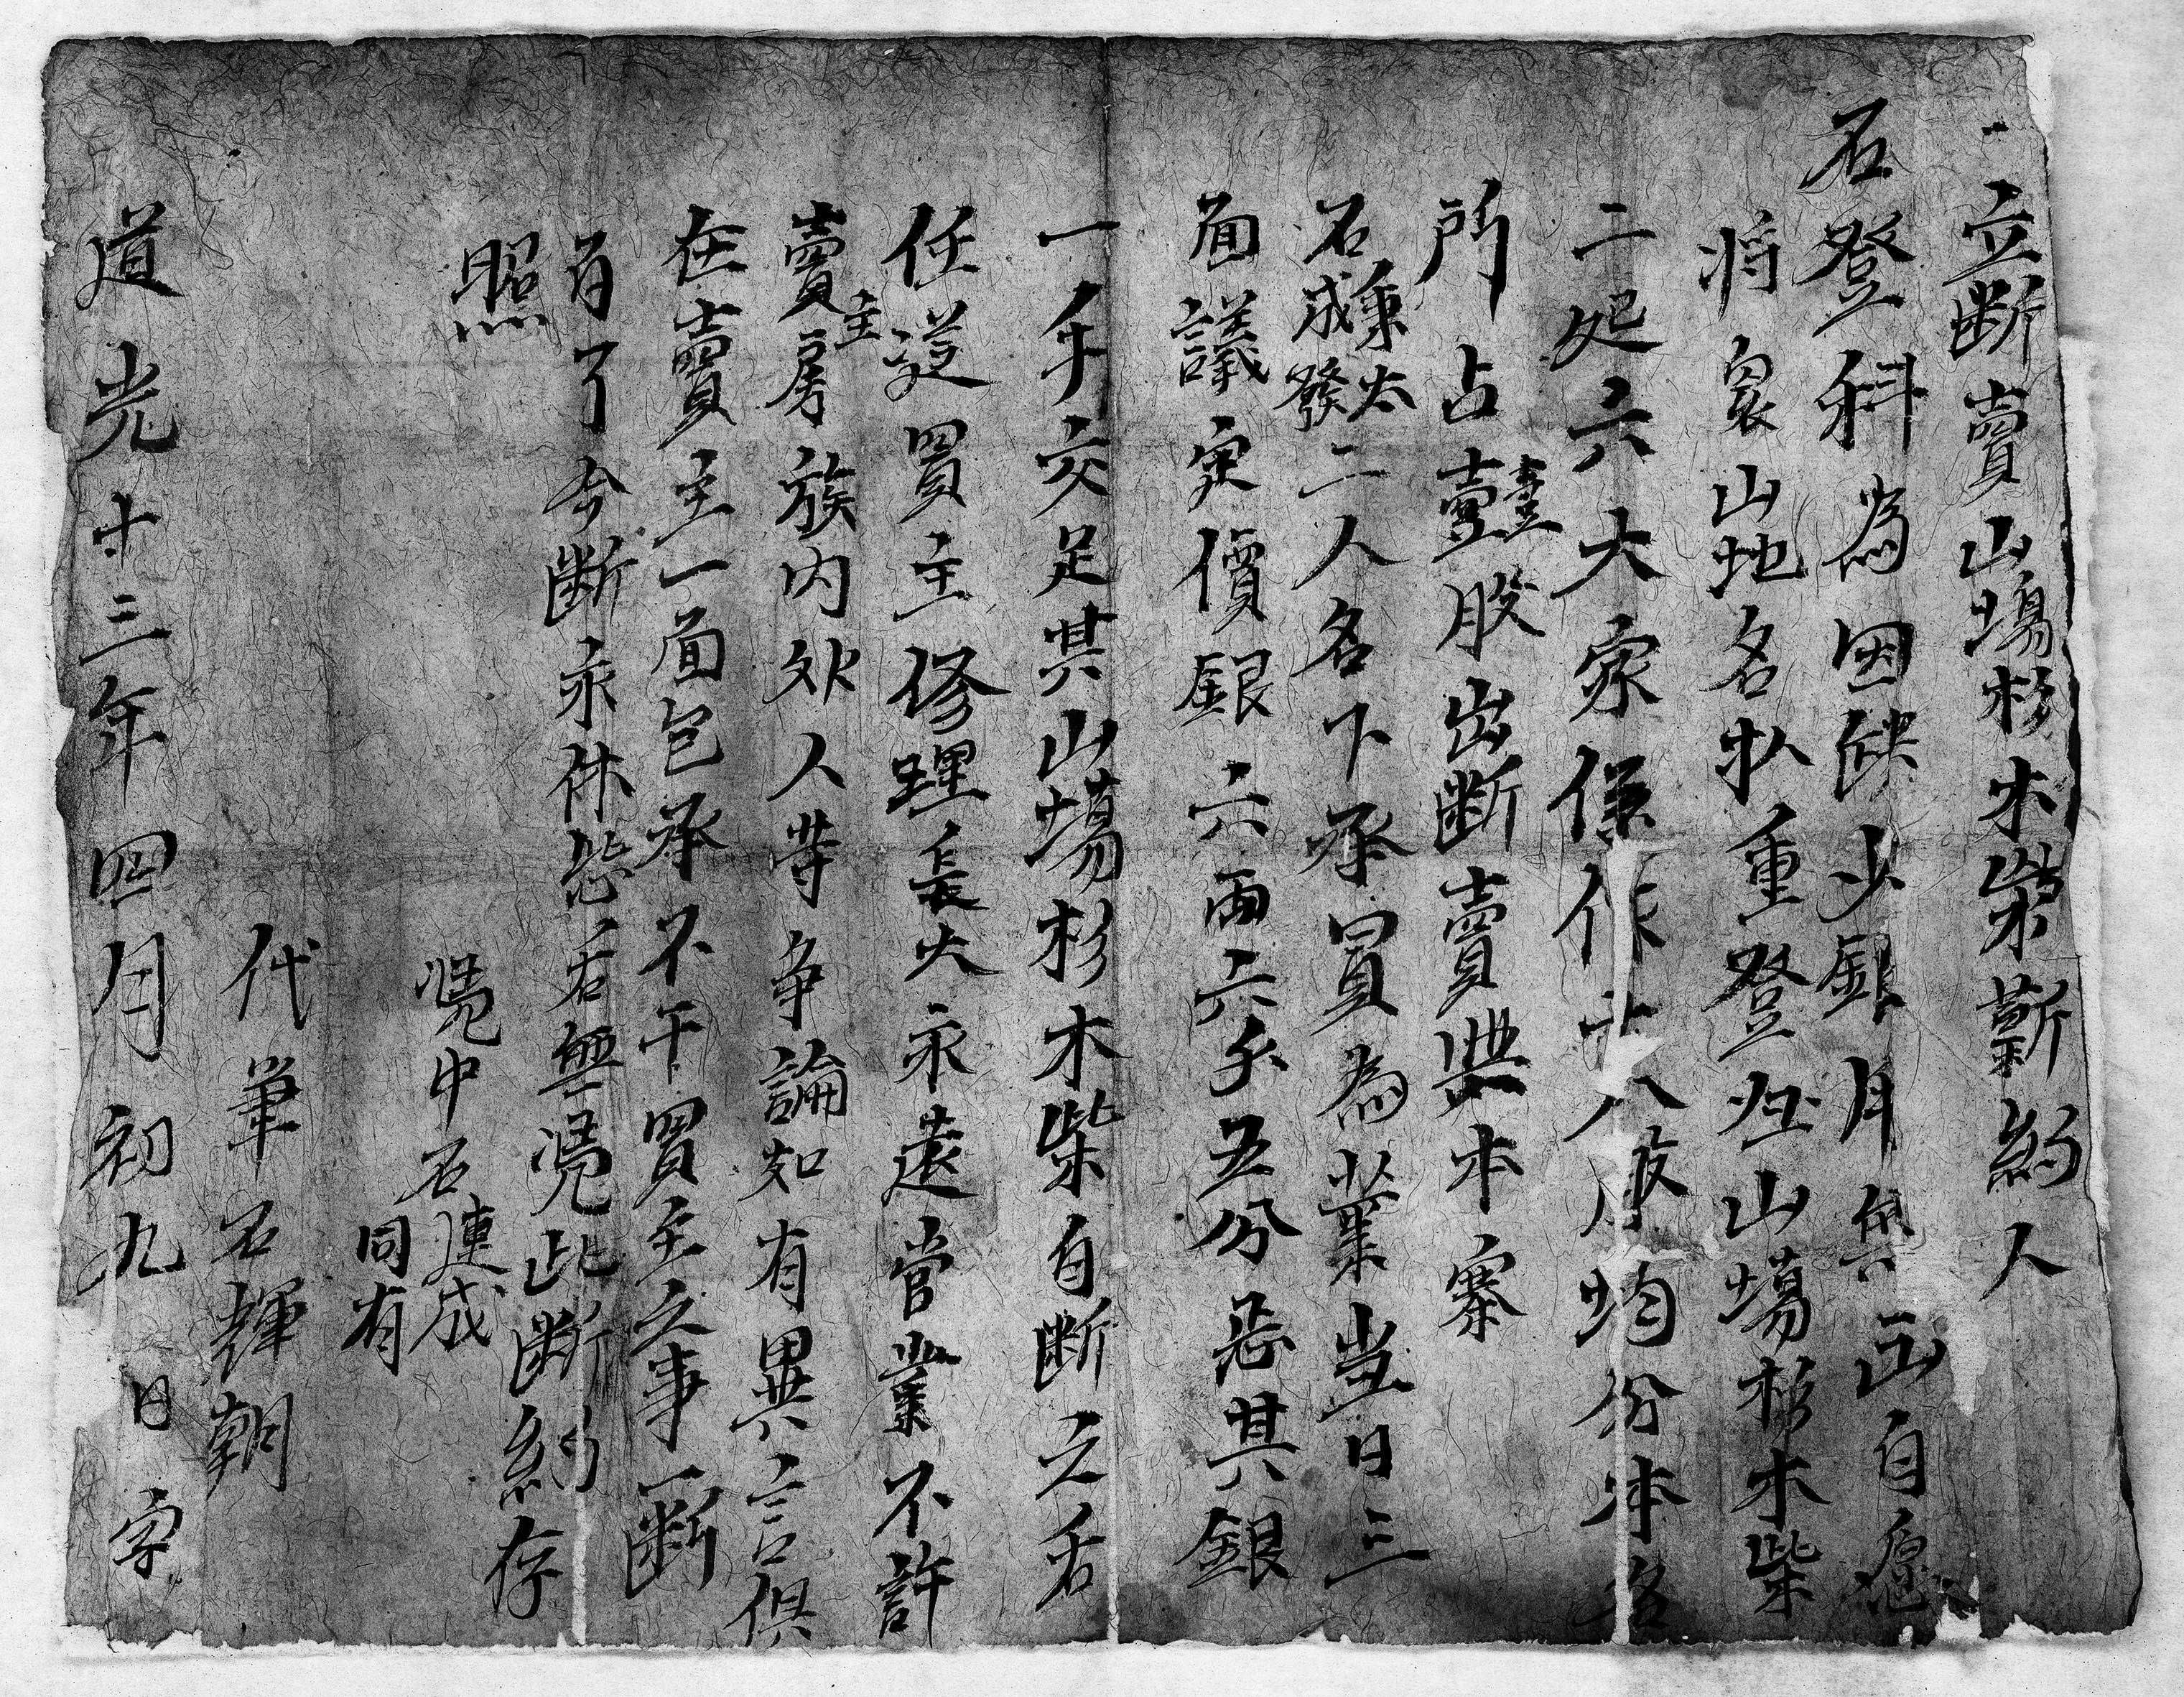 立斷賣山塲杉木柴薪約人
石登科為因缺少銀月無出自愿
將衆山地名扒重登山塲杉木柴
二処六大家作十八股均分本名
所占壹股出斷賣與本寨
石成發秉太二人名下承買為業当日三
面議定價銀六両六千五分忩其銀
一千交足其山塲杉木柴自斷之后
任從買主修理長大永遠當業不許
賣主房族内外人等争論如有異言俱
在賣主一面包承不干買主之事一断
百了今断永休恐后無凴此断約存
照
凴中石連成
同有
代筆石輝朝
道光十三年四月初九日字